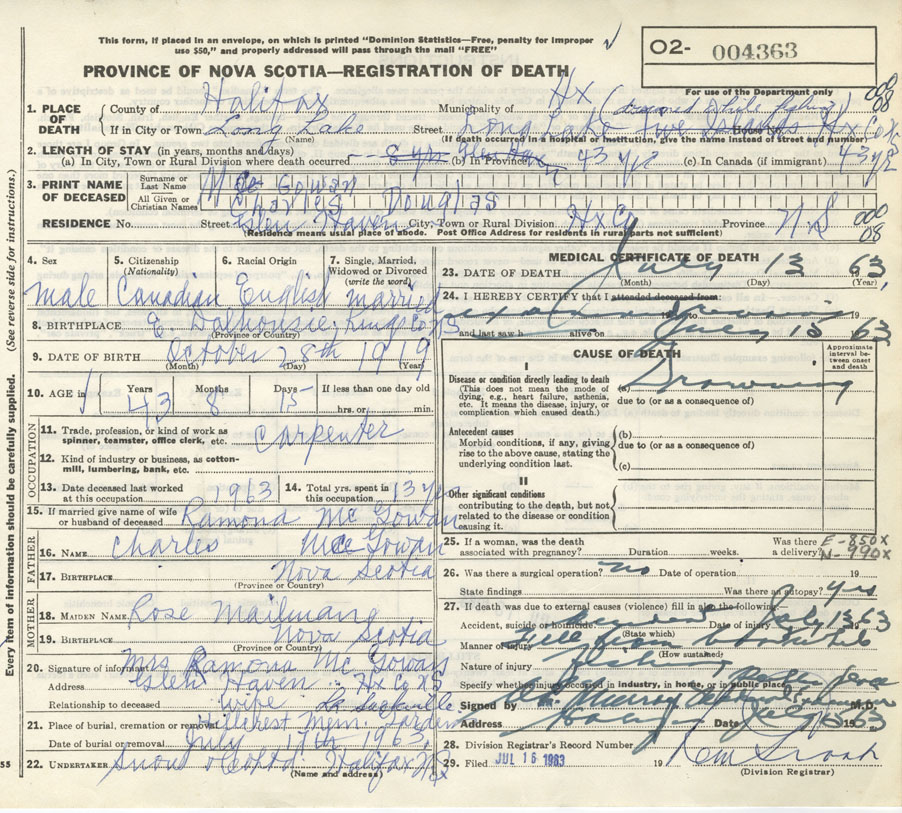 This form, if placed in an envelope, on which is printed "Dominion Statistics—Free, penalty for improper
use $50," and properly addressed will pass through the mail "FREE"
O2- 004363
PROVINCE OF NOVA SCOTIA—REGISTRATION OF DEATH
For use of the Department only
1. PLACE OF DEATH
County of Halifax Municipality of Hx (drowned while fishing)
If in City or Town Long Lake Street Long Lake Five Islands House No. Hx Co NS
(Name) (If death occurred in a hospital or institution, give the name instead of street and number)
2. LENGTH OF STAY (in years, months and days)
(a) In City, Town or Rural Division where death occurred (b) In Province 43 yrs (c) In Canada (if immigrant) 43 yrs
3. PRINT NAME OF DECEASED
Surname or Last Name Mc Gowan
All Given or Christian Names Charles Douglas
RESIDENCE No. Street Glen Haven City, Town or Rural Division Hx Co Province N.S
(Residence means usual place of abode. Post Office Address for residents in rural parts not sufficient)
000
08
4. Sex 5. Citizenship (Nationality) 6. Racial Origin 7. Single, Married, Widowed or Divorced (write the word)
male Canadian English married
8. BIRTHPLACE E. Dalhousie, Kings Co NS
(Province or Country)
9. DATE OF BIRTH October 28th 1919
(Month) (Day) (Year)
10. AGE in Years Months Days If less than one day old
43 8 15 hrs. or min.
OCCUPATION
11. Trade, profession, or kind of work as spinner, teamster, office clerk, etc. Carpenter
12. Kind of industry or business, as cotton-mill, lumbering, bank, etc.
13. Date deceased last worked at this occupation 1963 14. Total yrs. spent in this occupation 13 yrs
15. If married give name of wife or husband of deceased Ramona Mc Gowan
FATHER
16. NAME Charles Mc Gowan
17. BIRTHPLACE Nova Scotia
(Province or Country)
MOTHER
18. MAIDEN NAME Rose Mailmang
19. BIRTHPLACE Nova Scotia
(Province or Country)
20. Signature of informant Mrs Ramona Mc Gowan
Address Glen Haven Hx Co NS
Relationship to deceased wife
21. Place of burial, cremation or removal Hillcrest Mem. Gardens Lr Sackville
Date of burial or removal July 17th 1963
22. UNDERTAKER Snow & Co Ltd Halifax NS
(Name and address)
55
Every item of information should be carefully supplied. (See reverse side for instructions.)
MEDICAL CERTIFICATE OF DEATH
23. DATE OF DEATH July 13 63
(Month) (Day) (Year)
24. I HEREBY CERTIFY that I attended deceased from:
19 to 19
and last saw h alive on July 15 1963
CAUSE OF DEATH
Approximate interval between onset and death
I
Disease or condition directly leading to death
(This does not mean the mode of dying, e.g., heart failure, asthenia, etc. It means the disease, injury, or complication which caused death.)
(a) Drowning
due to (or as a consequence of)
Antecedent causes
Morbid conditions, if any, giving rise to the above cause, stating the underlying condition last.
(b)
due to (or as a consequence of)
(c)
II
Other significant conditions
contributing to the death, but not related to the disease or condition causing it.
25. If a woman, was the death associated with pregnancy? Duration weeks. Was there a delivery?
E-850X
N-990X
26. Was there a surgical operation? no Date of operation 19
State findings Was there an autopsy? yes
27. If death was due to external causes (violence) fill in also the following:
Accident, suicide or homicide. Date of injury July 13 63
(State which)
Manner of injury Fell from boat while
(How sustained)
Nature of injury fishing
Specify whether injury occurred in industry, in home, or in public place
Signed by M.D.
Address Date July 15 1963
28. Division Registrar's Record Number
29. Filed JUL 16 1963 19
(Division Registrar)